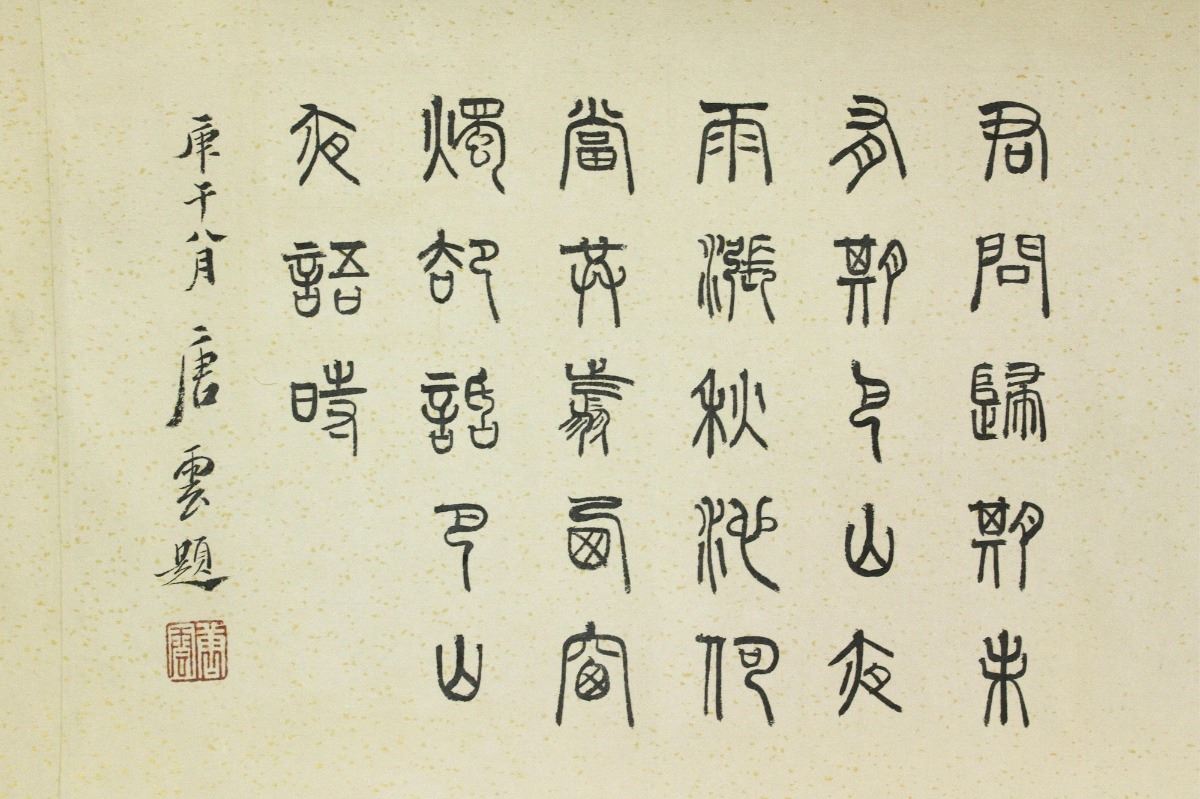 君問歸期未
有期巴山夜
雨漲秋池何
當共翦西窗
燭却話巴山
夜語時
庚午八月 唐雲題
唐雲